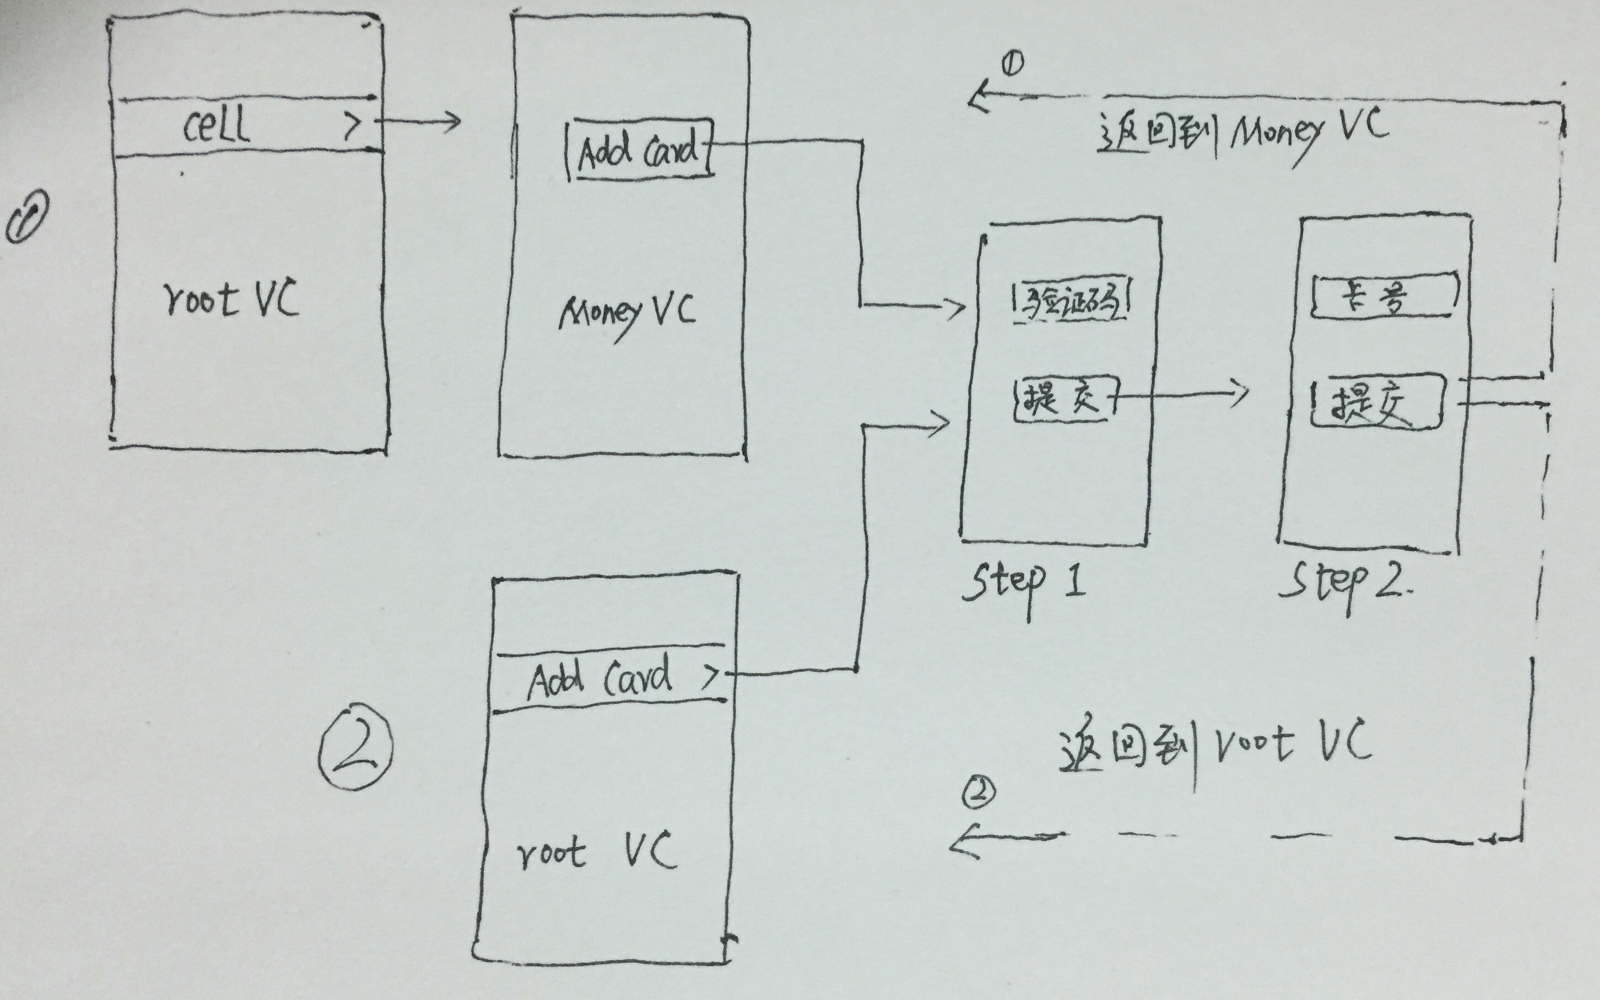 ①
cell >
root VC
Add Card
Money VC
①
返回到 Money VC
验证码
提交
Step 1
卡号
提交
Step 2.
②
Add Card >
root VC
返回到 root VC
②